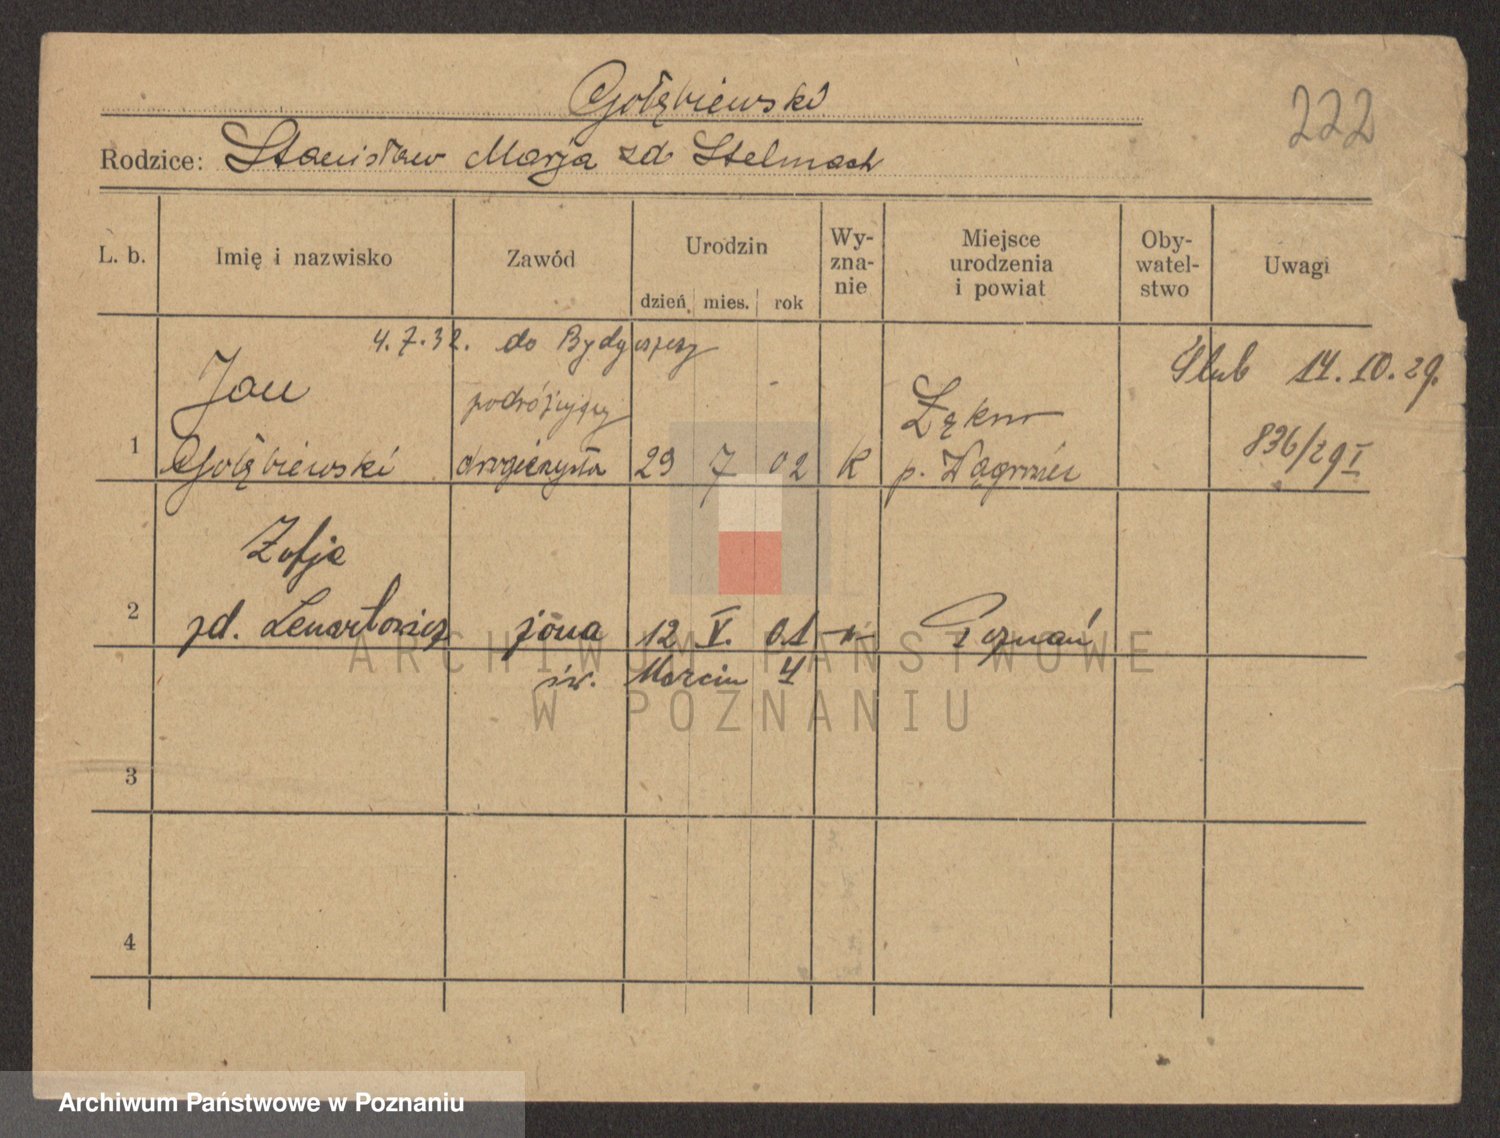 Gołębiewski
222
Rodzice: Stanisław Marja zd Stelmach
L. b.
Imię i nazwisko
Zawód
Urodzin
dzień mies. rok
Wy-
zna-
nie
Miejsce
urodzenia
i powiat
Oby-
watel-
stwo
Uwagi
4.7.32. do Bydgoszczy
Ślub 14.10.29.
Jan
podróżujący
1 Gołębiewski drogierzysta 29 7 02 K p. Wągrowiec 836/29 I
Zofja
2 zd. Lenartowicz żona 12 V. 01 -"- Poznań
św. Marcin 4
ARCHIWUM PAŃSTWOWE
W POZNANIU
3
4
Archiwum Państwowe w Poznaniu